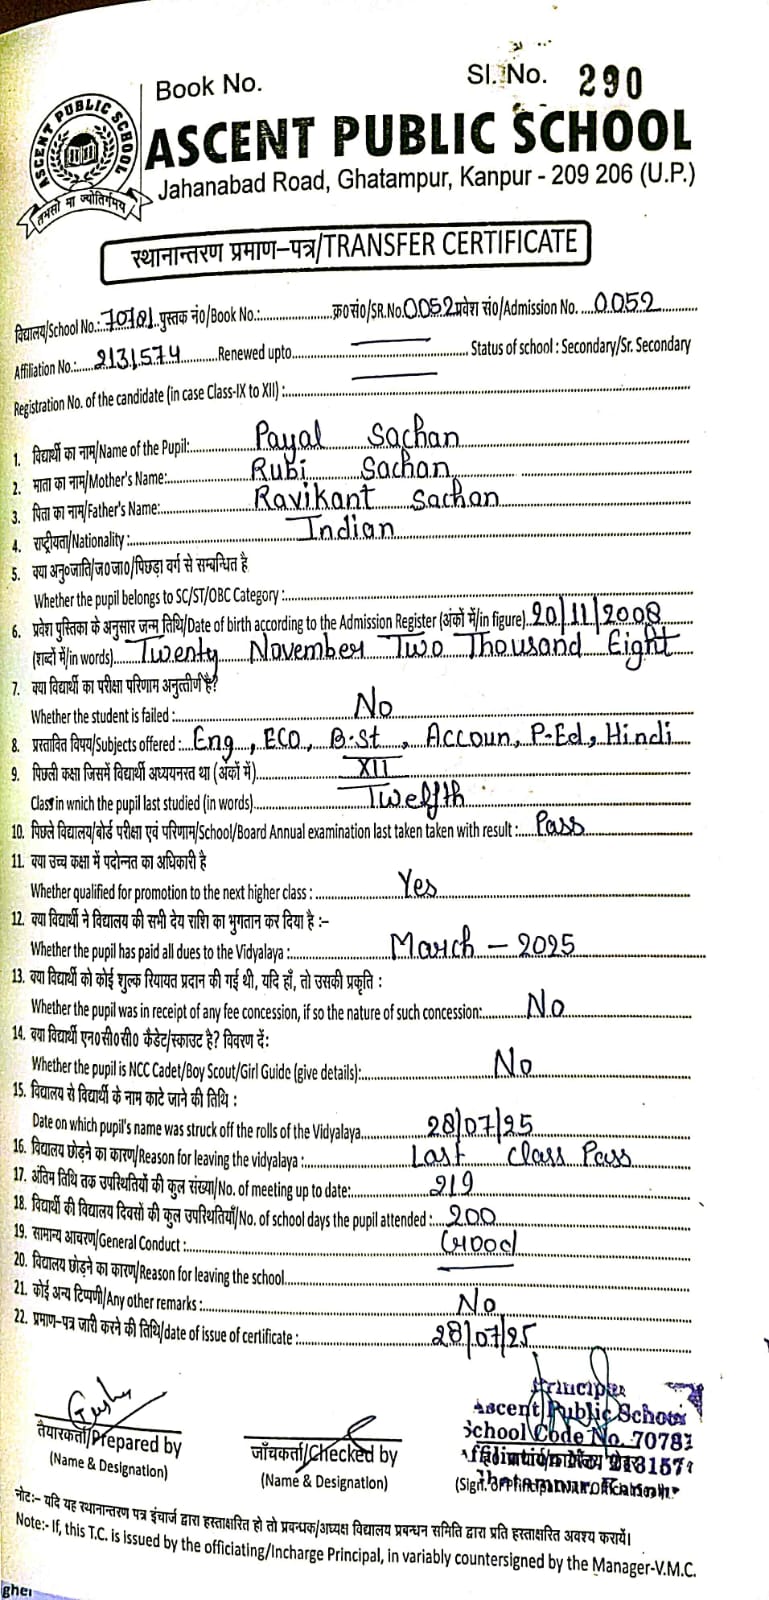 Book No.
Sl. No. 290
ASCENT PUBLIC SCHOOL
तमसो मा ज्योतिर्गमय
ASCENT PUBLIC SCHOOL
Jahanabad Road, Ghatampur, Kanpur - 209 206 (U.P.)
स्थानान्तरण प्रमाण-पत्र/TRANSFER CERTIFICATE
विद्यालय/School No.: 70781 पुस्तक नं०/Book No.: क्र०सं०/SR.No. 0052 प्रवेश सं०/Admission No. 0052
Affiliation No.: 2131574 Renewed upto Status of school : Secondary/Sr. Secondary
Registration No. of the candidate (in case Class-IX to XII) :
1. विद्यार्थी का नाम/Name of the Pupil: Payal Sachan
2. माता का नाम/Mother's Name: Rubi Sachan
3. पिता का नाम/Father's Name: Ravikant Sachan
4. राष्ट्रीयता/Nationality : Indian
5. क्या अनु०जाति/ज०जा०/पिछड़ा वर्ग से सम्बन्धित है
Whether the pupil belongs to SC/ST/OBC Category :
6. प्रवेश पुस्तिका के अनुसार जन्म तिथि/Date of birth according to the Admission Register (अंकों में/in figure) 20/11/2008
(शब्दों में/in words) Twenty November Two Thousand Eight
7. क्या विद्यार्थी का परीक्षा परिणाम अनुत्तीर्ण है?
Whether the student is failed : No
8. प्रस्तावित विषय/Subjects offered : Eng, ECO, B.St, Accoun, P-Ed, Hindi
9. पिछली कक्षा जिसमें विद्यार्थी अध्ययनरत था (अंकों में) XII
Class in wnich the pupil last studied (in words) Twelfth
10. पिछले विद्यालय/बोर्ड परीक्षा एवं परिणाम/School/Board Annual examination last taken taken with result : Pass
11. क्या उच्च कक्षा में पदोन्नत का अधिकारी है
Whether qualified for promotion to the next higher class : Yes
12. क्या विद्यार्थी ने विद्यालय की सभी देय राशि का भुगतान कर दिया है :-
Whether the pupil has paid all dues to the Vidyalaya : March - 2025
13. क्या विद्यार्थी को कोई शुल्क रियायत प्रदान की गई थी, यदि हाँ, तो उसकी प्रकृति :
Whether the pupil was in receipt of any fee concession, if so the nature of such concession: No
14. क्या विद्यार्थी एन०सी०सी० कैडेट/स्काउट है? विवरण दें:
Whether the pupil is NCC Cadet/Boy Scout/Girl Guide (give details): No
15. विद्यालय से विद्यार्थी के नाम काटे जाने की तिथि :
Date on which pupil's name was struck off the rolls of the Vidyalaya 28/07/25
16. विद्यालय छोड़ने का कारण/Reason for leaving the vidyalaya : Last class Pass
17. अंतिम तिथि तक उपस्थितियों की कुल संख्या/No. of meeting up to date: 219
18. विद्यार्थी की विद्यालय दिवसों की कुल उपस्थितियाँ/No. of school days the pupil attended : 200
19. सामान्य आचरण/General Conduct : Good
20. विद्यालय छोड़ने का कारण/Reason for leaving the school
21. कोई अन्य टिप्पणी/Any other remarks : No
22. प्रमाण-पत्र जारी करने की तिथि/date of issue of certificate : 28/07/25
Principal
Ascent Public School
School Code No. 70781
तैयारकर्ता/Prepared by
(Name & Designation)
जाँचकर्ता/Checked by
(Name & Designation)
नोट:- यदि यह स्थानान्तरण पत्र इंचार्ज द्वारा हस्ताक्षरित हो तो प्रबन्धक/अध्यक्ष विद्यालय प्रबन्धन समिति द्वारा प्रति हस्ताक्षरित अवश्य करायें।
Note:- If, this T.C. is issued by the officiating/Incharge Principal, in variably countersigned by the Manager-V.M.C.